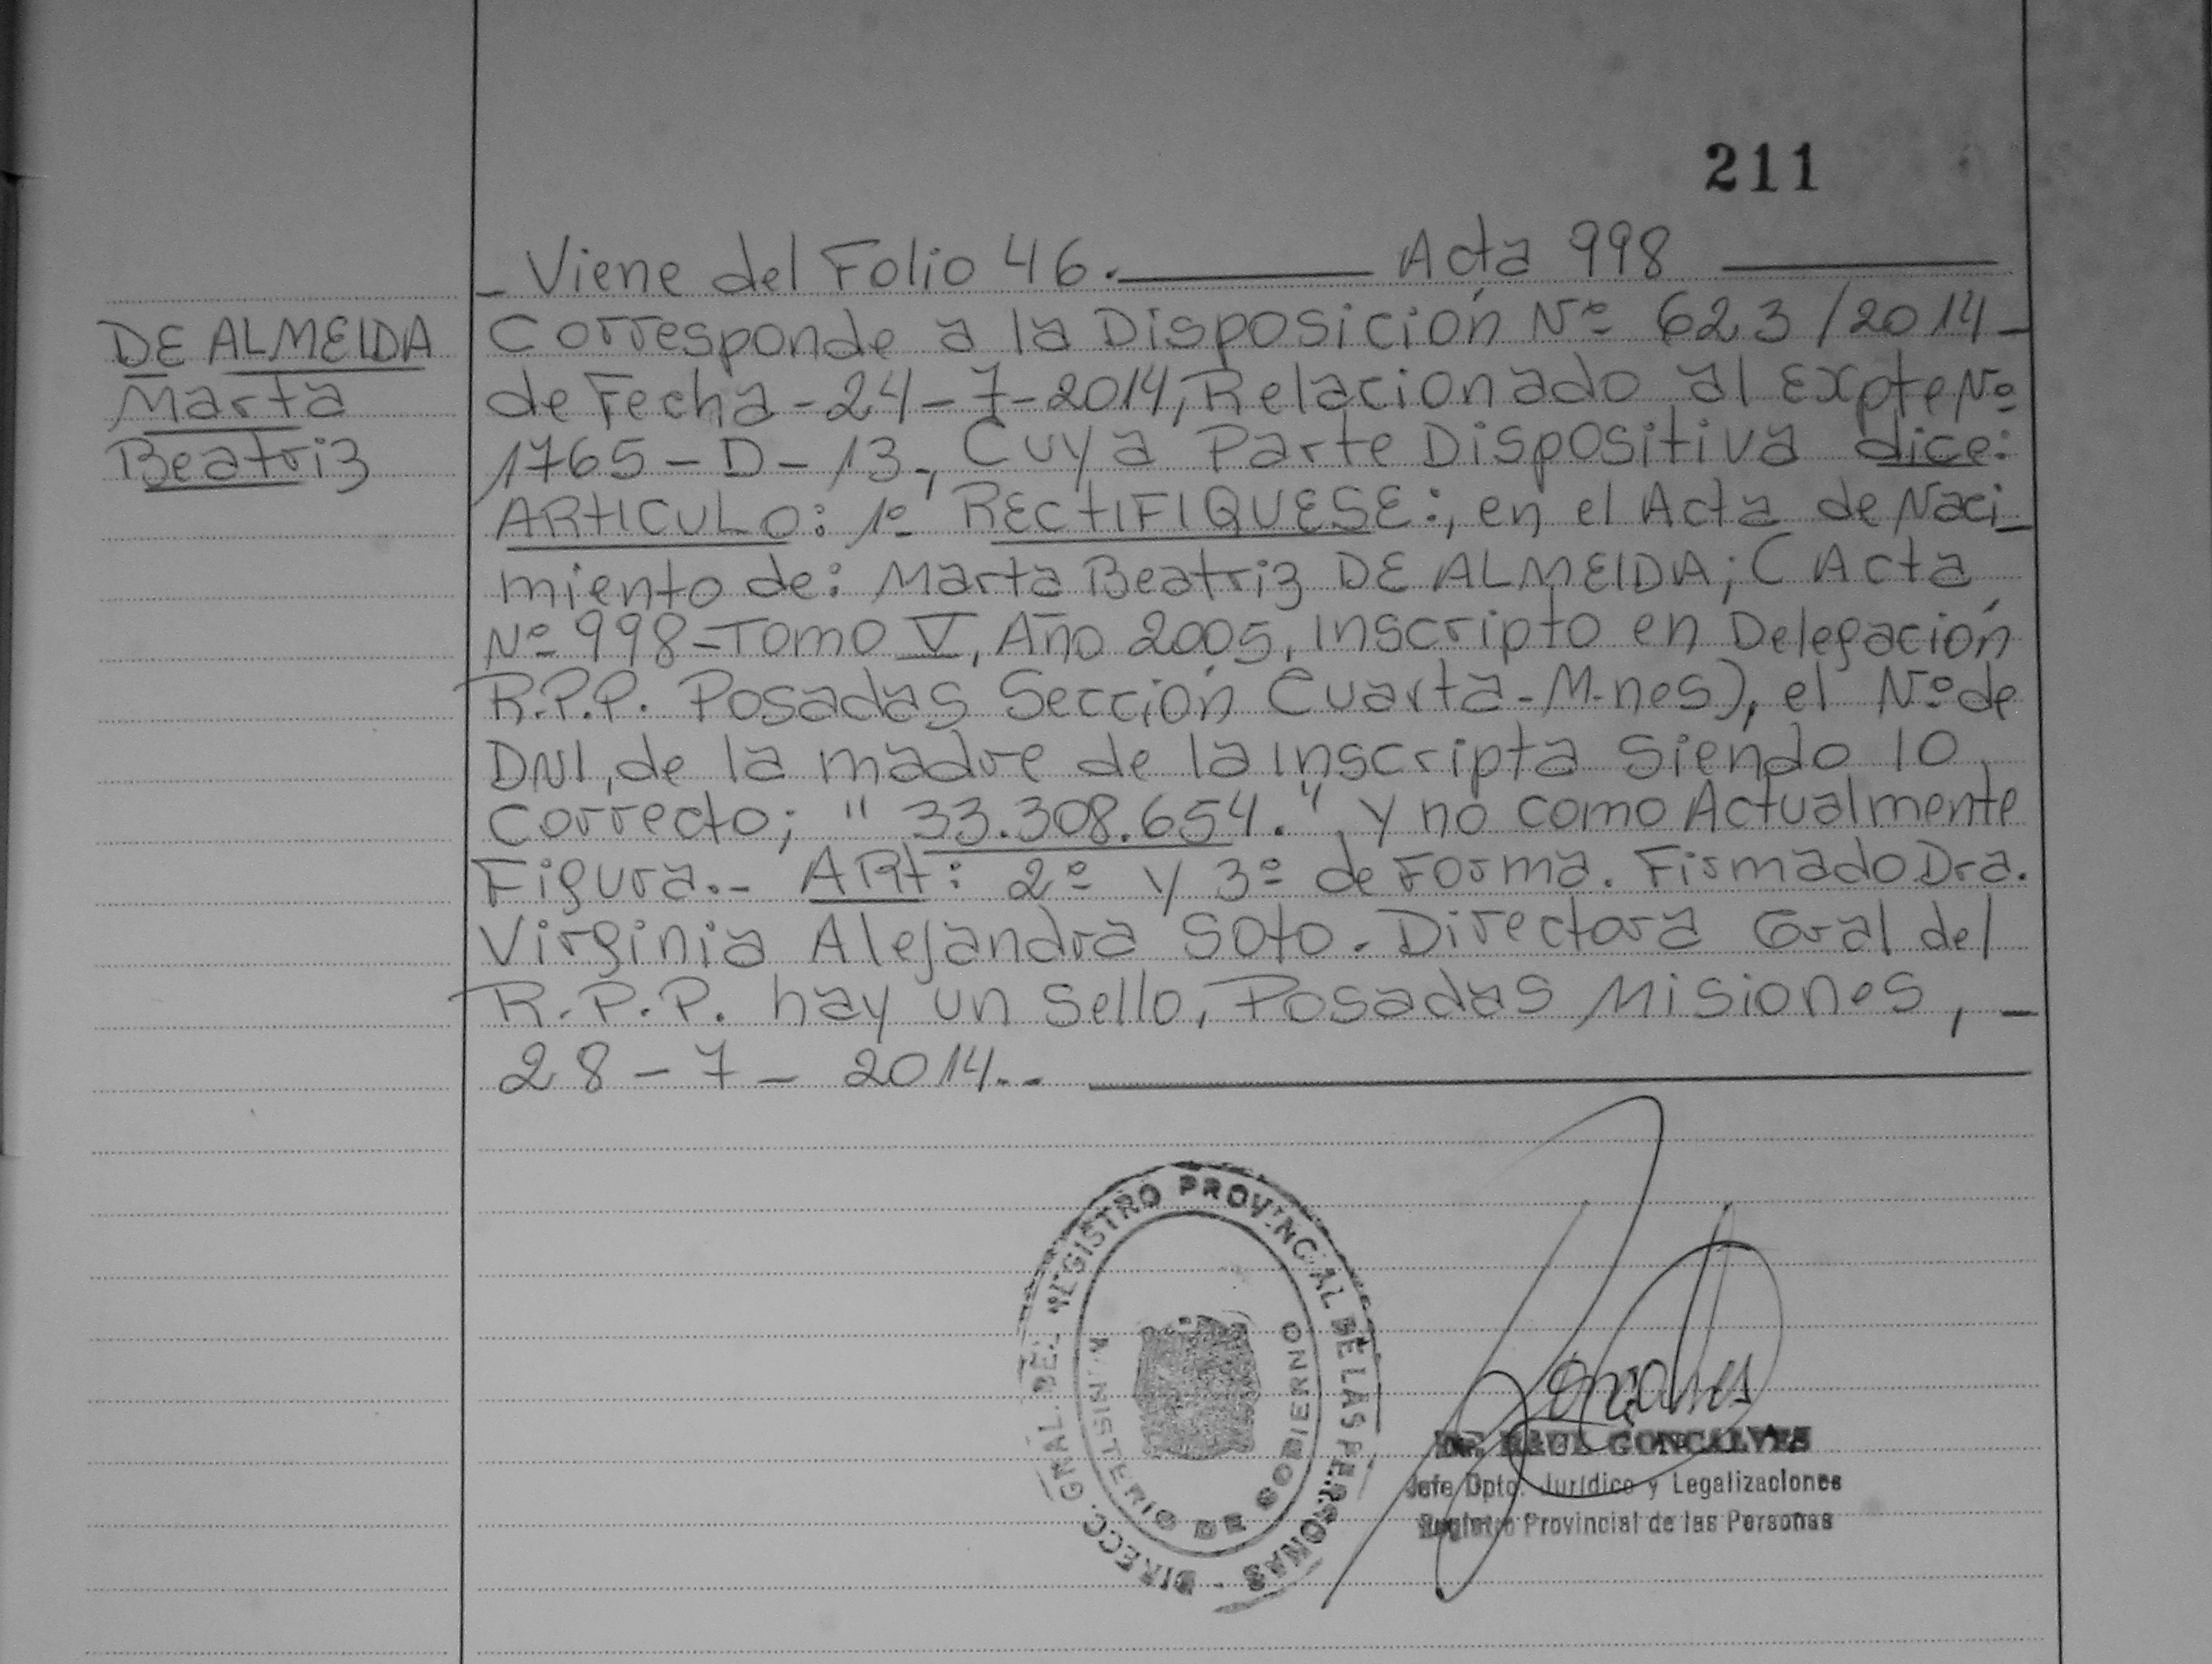 211
- Viene del Folio 46. Acta 998
DE ALMEIDA
Marta
Beatriz
Corresponde a la Disposición Nº 623/2014-
de Fecha-24-7-2014, Relacionado al Expte Nº
1765-D-13, Cuya Parte Dispositiva dice:
ARTICULO: 1º RECTIFIQUESE:, en el Acta de Naci-
miento de: Marta Beatriz DE ALMEIDA; ( Acta
Nº 998-Tomo V, Año 2005, Inscripto en Delegación
R.P.P. Posadas Sección Cuarta-M-nes), el Nº de
DNI, de la madre de la inscripta siendo lo
correcto; "33.308.654.", y no como Actualmente
Figura.- ARt: 2º y 3º de Forma. Firmado Dra.
Virginia Alejandra Soto. Directora Gral del
R.P.P. hay un Sello, Posadas Misiones, -
28-7-2014.-
DIRECC. GRAL. DEL REGISTRO PROVINCIAL DE LAS PERSONAS -
MINISTERIO DE GOBIERNO
Goncalves
DR. RAUL GONCALVES
Jefe Dpto. Jurídico y Legalizaciones
Registro Provincial de las Personas